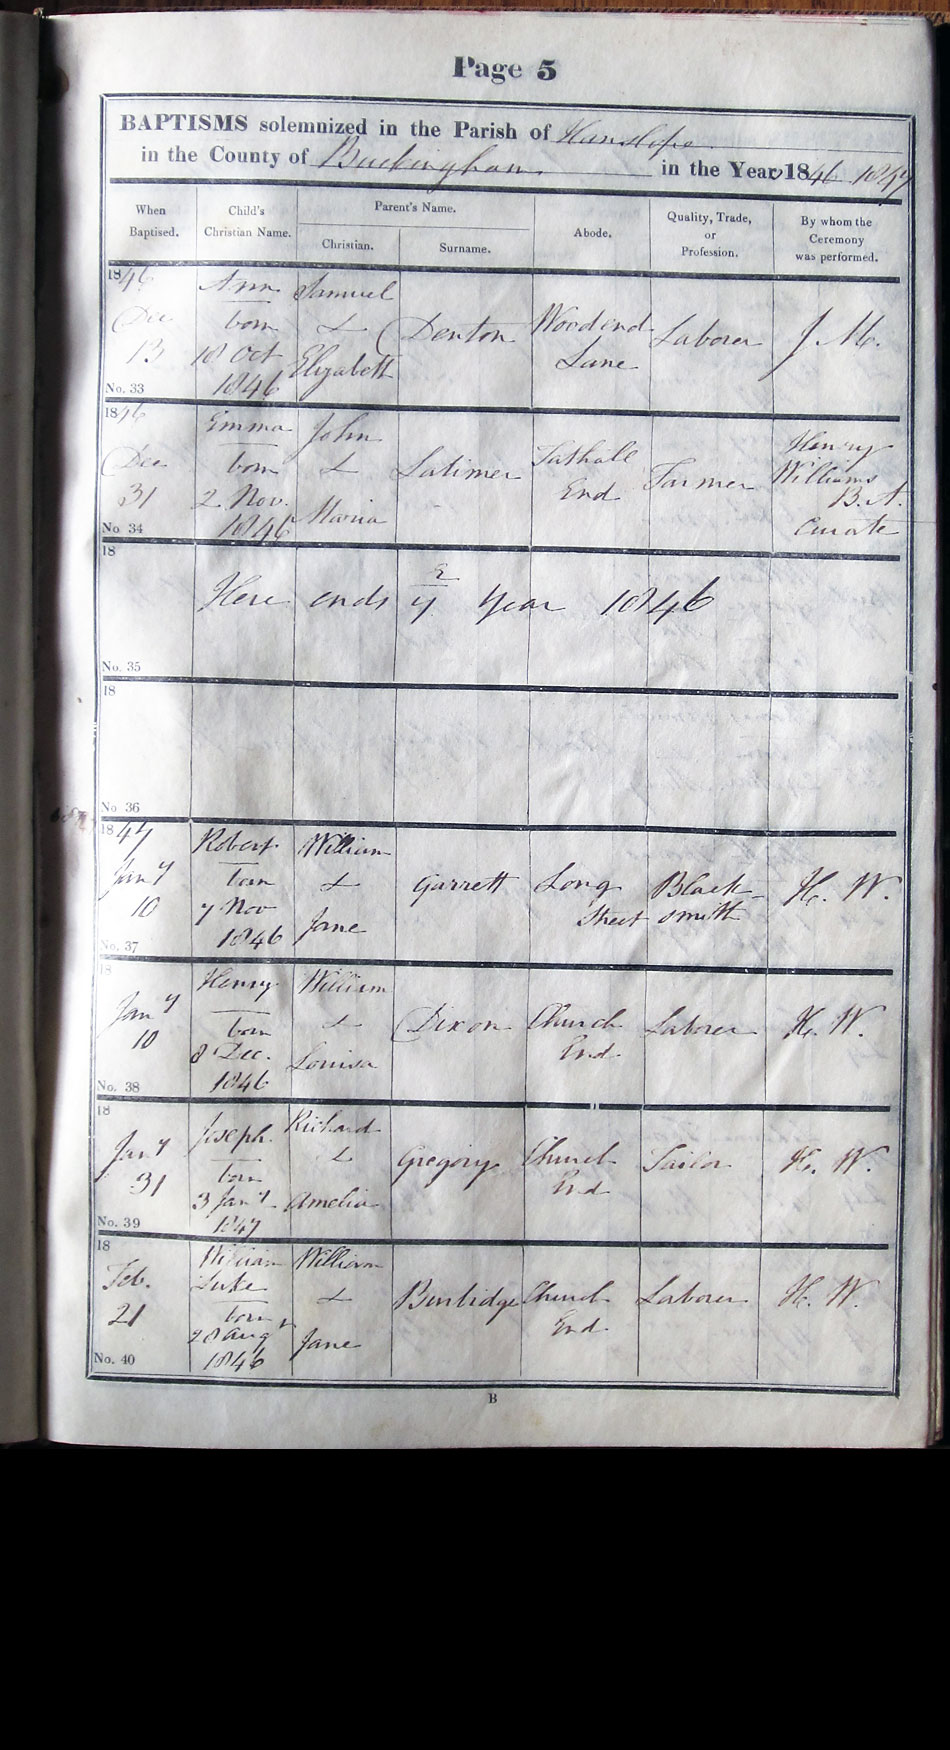 Page 5
BAPTISMS solemnized in the Parish of Hanslope
in the County of Buckingham in the Year 1846 1847
When Baptised.
Child's Christian Name.
Parent's Name.
Christian.
Surname.
Abode.
Quality, Trade, or Profession.
By whom the Ceremony was performed.
1846
Dec
13
No. 33
Ann
born
18 Oct
1846
Samuel
&
Elizabeth
Denton
Woodend
Lane
Laborer
J. M.
1846
Dec
31
No. 34
Emma
born
2 Nov.
1846
John
&
Maria
Latimer
Tathall
End
Farmer
Henry
Williams
B. A.
Curate
18
Here ends ye Year 1846
No. 35
18
No 36
1847
Jany
10
No. 37
Robert
born
7 Nov
1846
William
&
Jane
Garrett
Long
Street
Black-
smith
H. W.
18
Jany
10
No. 38
Henry
born
8 Dec.
1846
William
&
Louisa
Dixon
Church
End
Laborer
H. W.
18
Jany
31
No. 39
Joseph
born
3 Jany
1847
Richard
&
Amelia
Gregory
Church
End
Tailor
H. W.
18
Feb.
21
No. 40
William
Luke
born
28 Aug
1846
William
&
Jane
Burbidge
Church
End
Laborer
H. W.
B